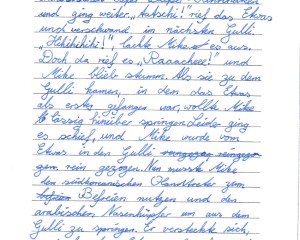 und ging weiter. „Hatschi!" rief das Etwas
und verschwand im nächsten Gulli.
„Hihihihihi!", lachte Mike es aus.
Doch da rief es „Raaacheee!" und
Mike blieb stumm. Als sie zu dem
Gulli kamen, in den das Etwas
als erstes gefangen war, wollte Mike
Lässig hinüber springen. Leider ging
es schief, und Mike wurde vom
Etwas in den Gulli
rein gezogen. Nun musste Mike
den südkoreanischen Handtrator zum
Befreien nutzen und den
arabischen Nasenhüpfer um aus dem
Gulli zu springen. Er versteckte sich,